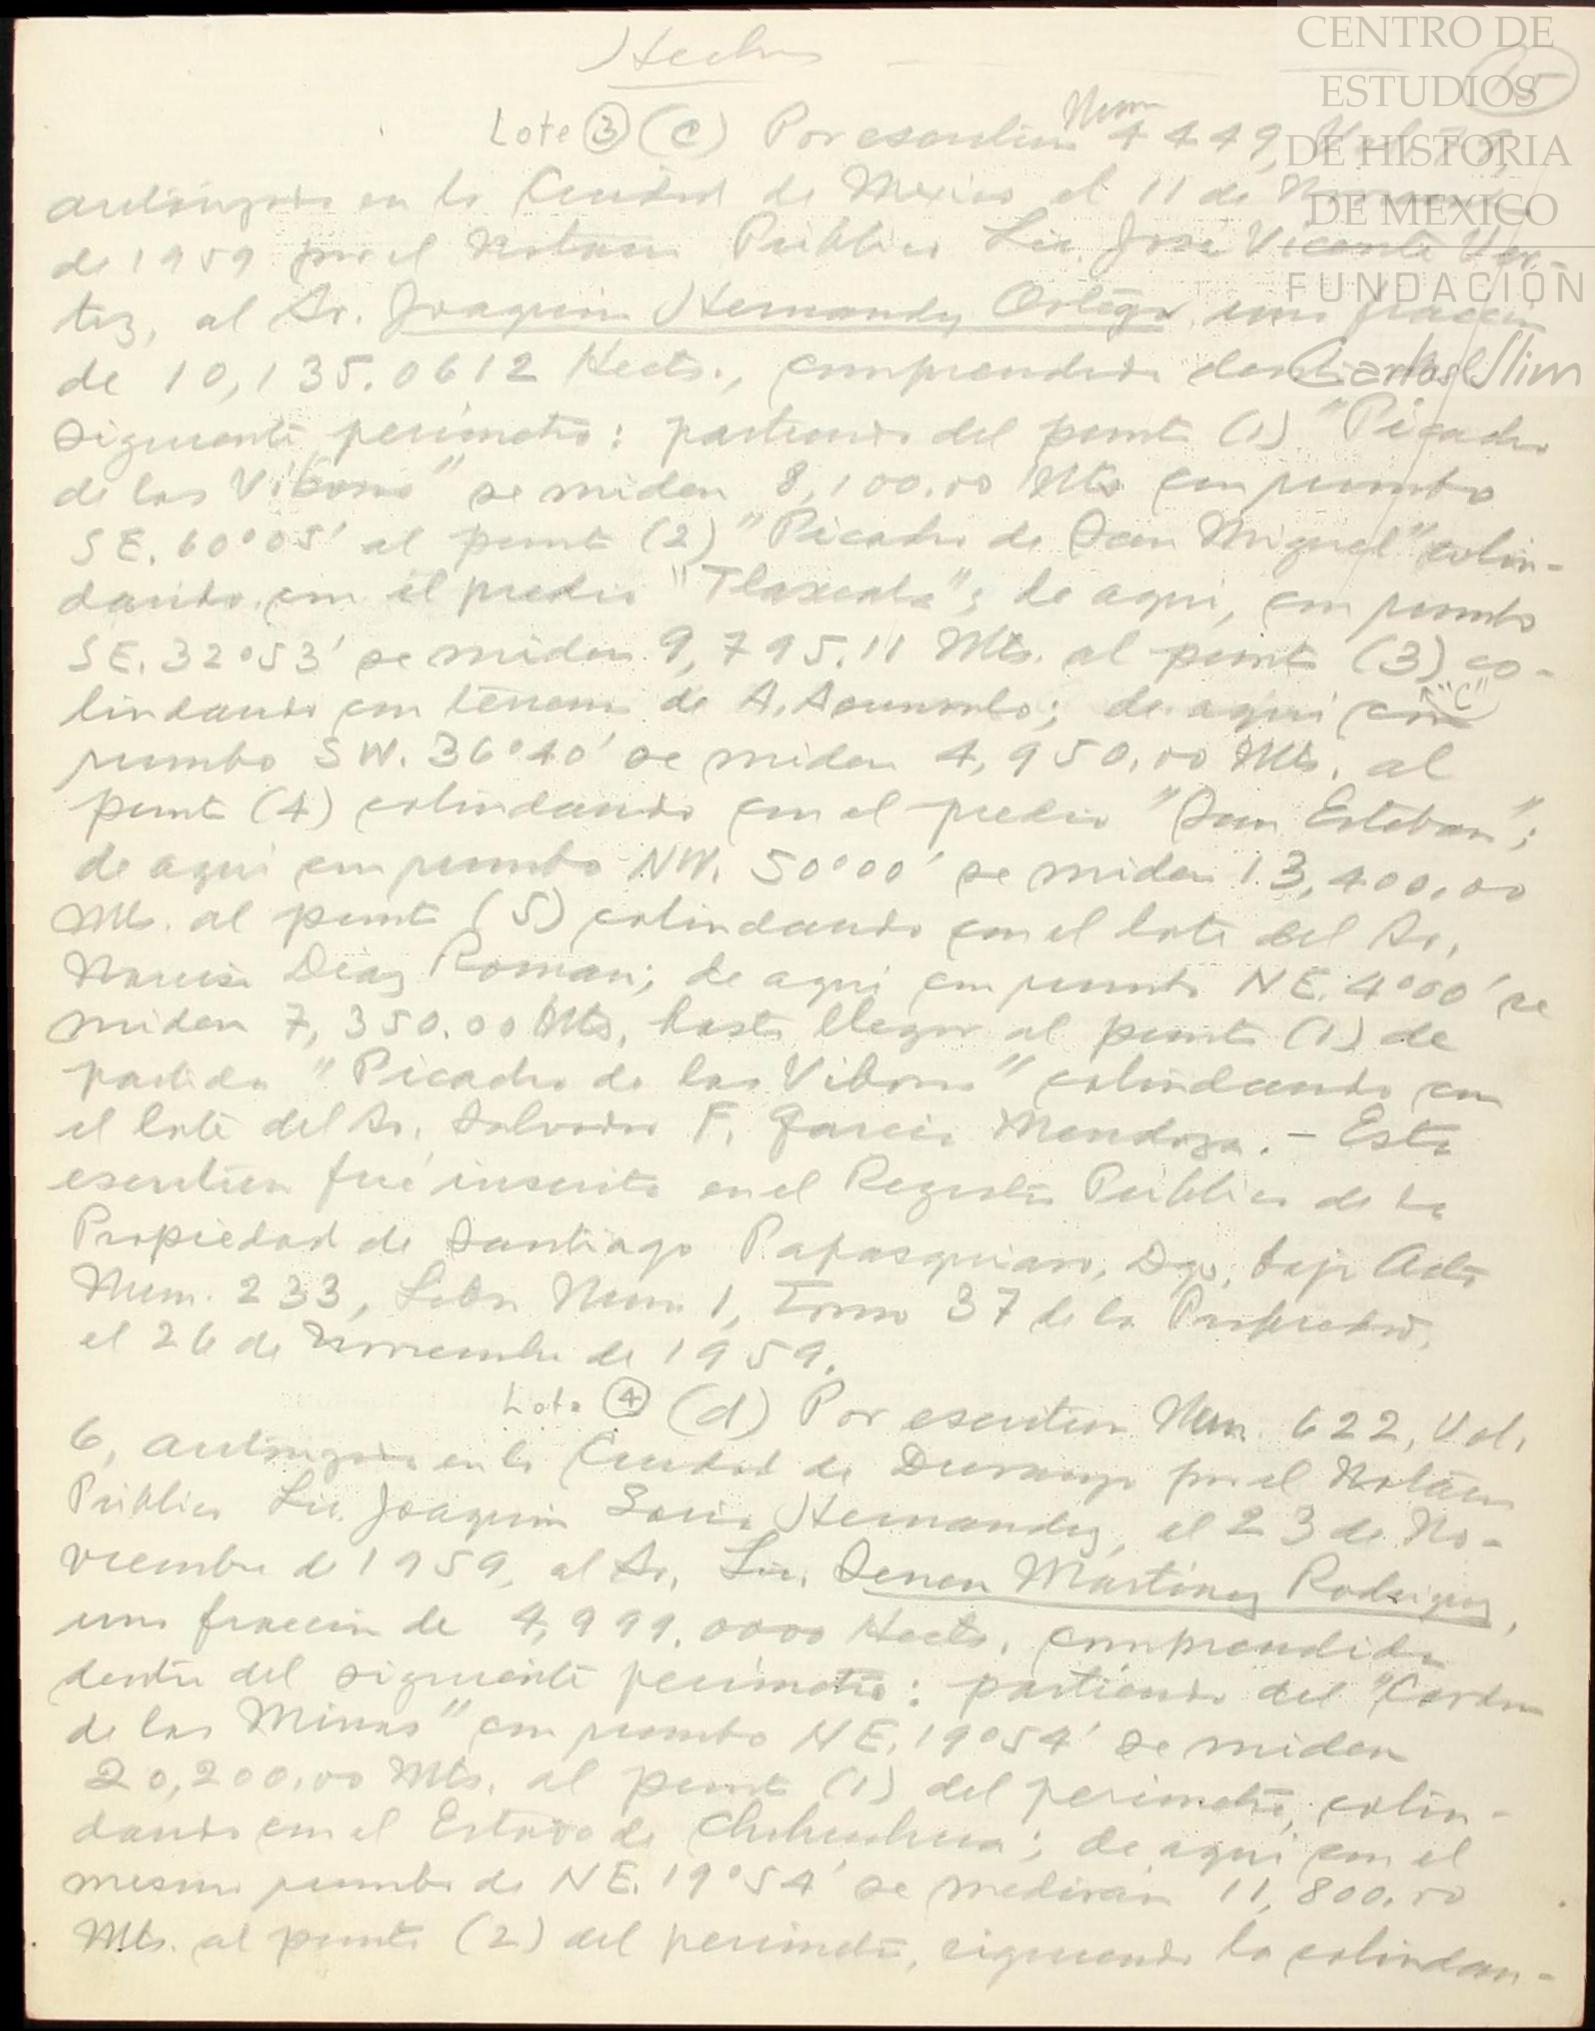 Hechos
CENTRO DE
ESTUDIOS
DE HISTORIA
DE MEXICO
FUNDACIÓN
Carlos Slim
15
Lote (3) (c) Por escritura Num 4449, Vol.
autorizada en la Ciudad de Mexico el 11 de Noviembre
de 1959 por el Notario Público Lic. José Vicente
tiz, al Sr. Joaquin Hernandez Ortega, una fraccion
de 10,135.0612 Hects., comprendida dentro del
siguiente perimetro: partiendo del punto (1) "Picacho
de las Vibora" se miden 8,100.00 Mts con rumbo
SE. 60°05' al punto (2) "Picacho de San Miguel" colin-
dando con el predio "Tlaxcala"; de aqui, con rumbo
SE. 32°53' se miden 9,795.11 Mts. al punto (3) co-
"C"
lindando con terreno de A. Acunzolo; de aqui con
rumbo SW. 36°40' se miden 4,950.00 Mts. al
punto (4) colindando con el predio "San Esteban";
de aqui con rumbo NW. 50°00' se miden 13,400.00
Mts. al punto (5) colindando con el lote del Sr.
Narciso Diaz Roman; de aqui con rumbo NE. 4°00' se
miden 7,350.00 Mts, hasta llegar al punto (1) de
partida "Picacho de las Vibora" colindando con
el lote del Sr. Salvador F. Garcia Mendoza. - Esta
escritura fué inscrita en el Registro Publico de la
Propiedad de Santiago Papasquiaro, Dgo, bajo Acta
Num. 233, Libro Num 1, Tomo 37 de la Propiedad,
el 26 de Noviembre de 1959.
Lote (4) (d) Por escritura Num. 622, Vol.
6, autorizada en la Ciudad de Durango por el Notario
Público Lic. Joaquin Soria Hernandez, el 23 de No-
viembre de 1959, al Sr. Lic. Senen Martinez Rodriguez,
una fraccion de 4,999.0000 Hects. comprendida
dentro del siguiente perimetro: partiendo del "Cordon
de las Minas" con rumbo NE. 19°54' se miden
20,200.00 Mts. al punto (1) del perimetro, colin-
dando con el Estado de Chihuahua; de aqui con el
mismo rumbo de NE. 19°54' se mediran 11,800.00
Mts. al punto (2) del perimetro, siguiendo la colindan-